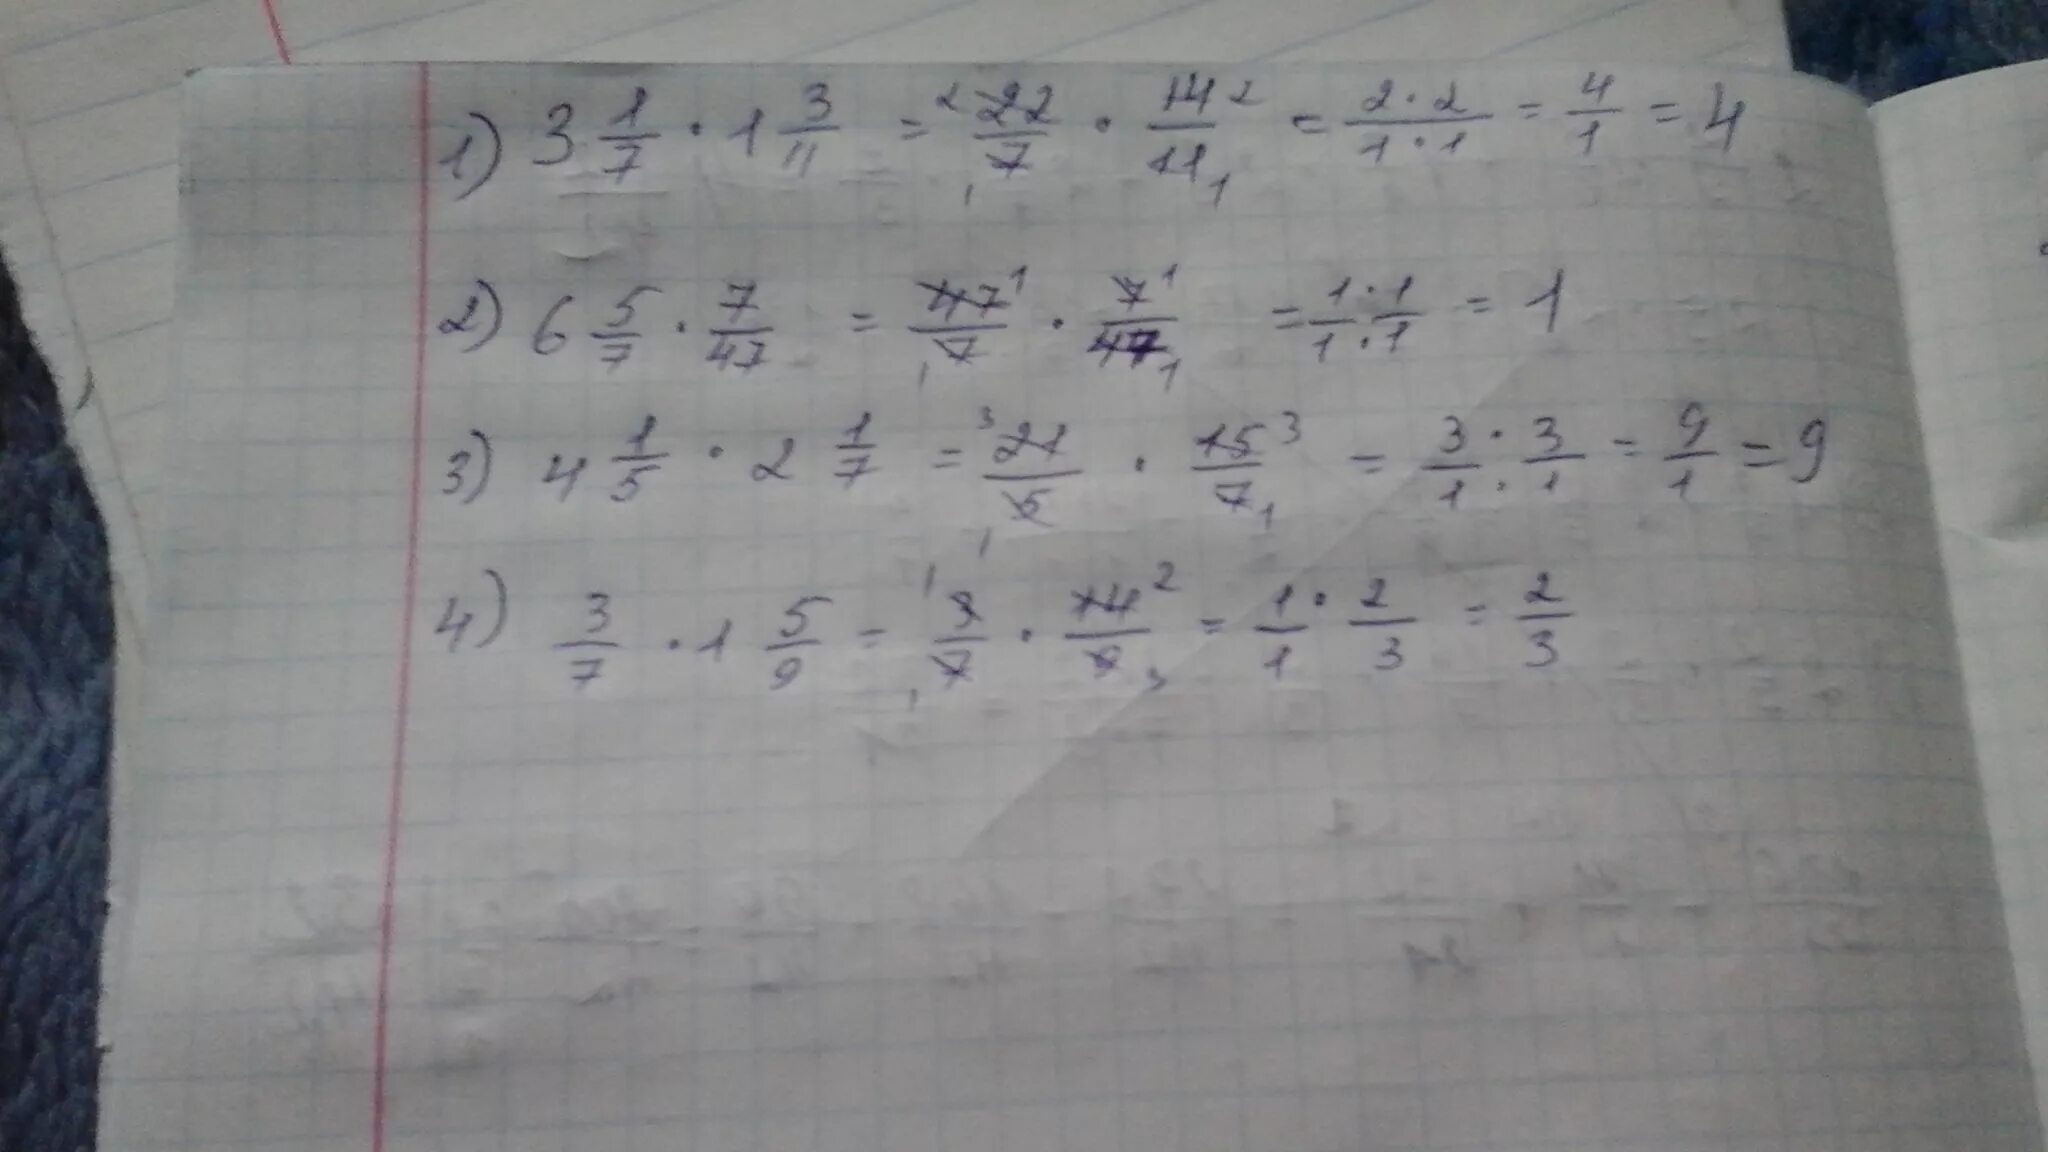 1) 3 1/7 · 1 3/11 = 2 22/7 1 · 14 2/11 1 = 2·2/1·1 = 4/1 = 4
2) 6 5/7 · 7/47 = 47 1/7 1 · 7 1/47 1 = 1·1/1·1 = 1
3) 4 1/5 · 2 1/7 = 3 21/5 1 · 15 3/7 1 = 3·3/1·1 = 9/1 = 9
4) 3/7 · 1 5/9 = 1 3/7 1 · 14 2/9 3 = 1/1 · 2/3 = 2/3